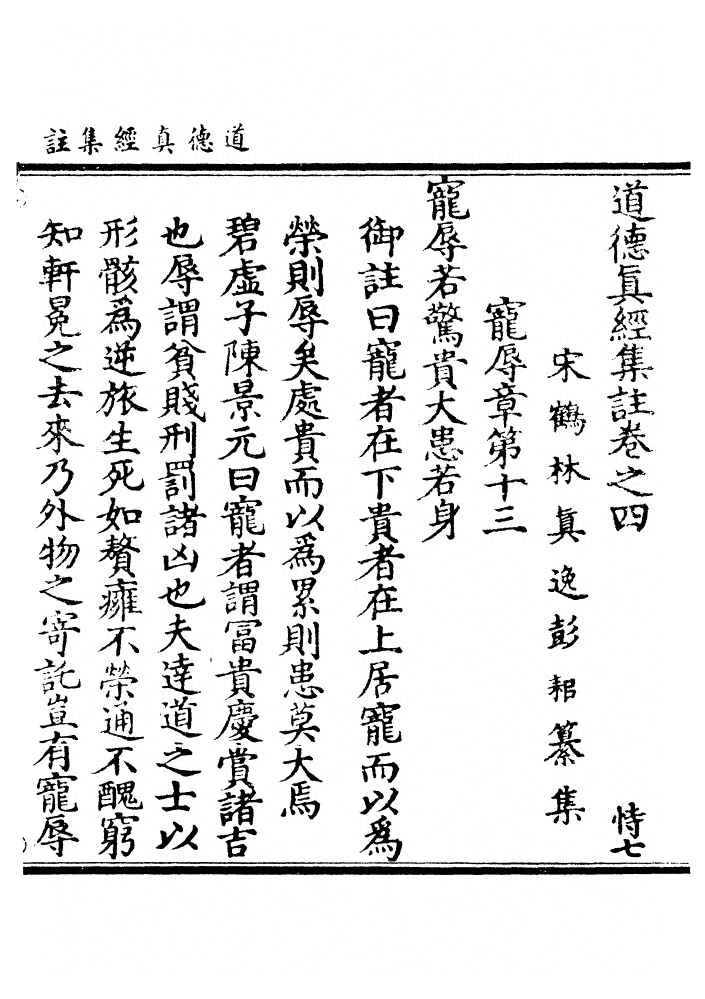 道德眞經集註
道德眞經集註卷之四　恃七
宋鶴林眞逸彭耜纂集
寵辱章第十三
寵辱若驚貴大患若身
御註曰寵者在下貴者在上居寵而以爲
榮則辱矣處貴而以爲累則患莫大焉
碧虛子陳景元曰寵者謂冨貴慶賞諸吉
也辱謂貧賤刑罰諸凶也夫達道之士以
形骸爲逆旅生死如贅癰不榮通不醜窮
知軒冕之去來乃外物之寄託豈有寵辱